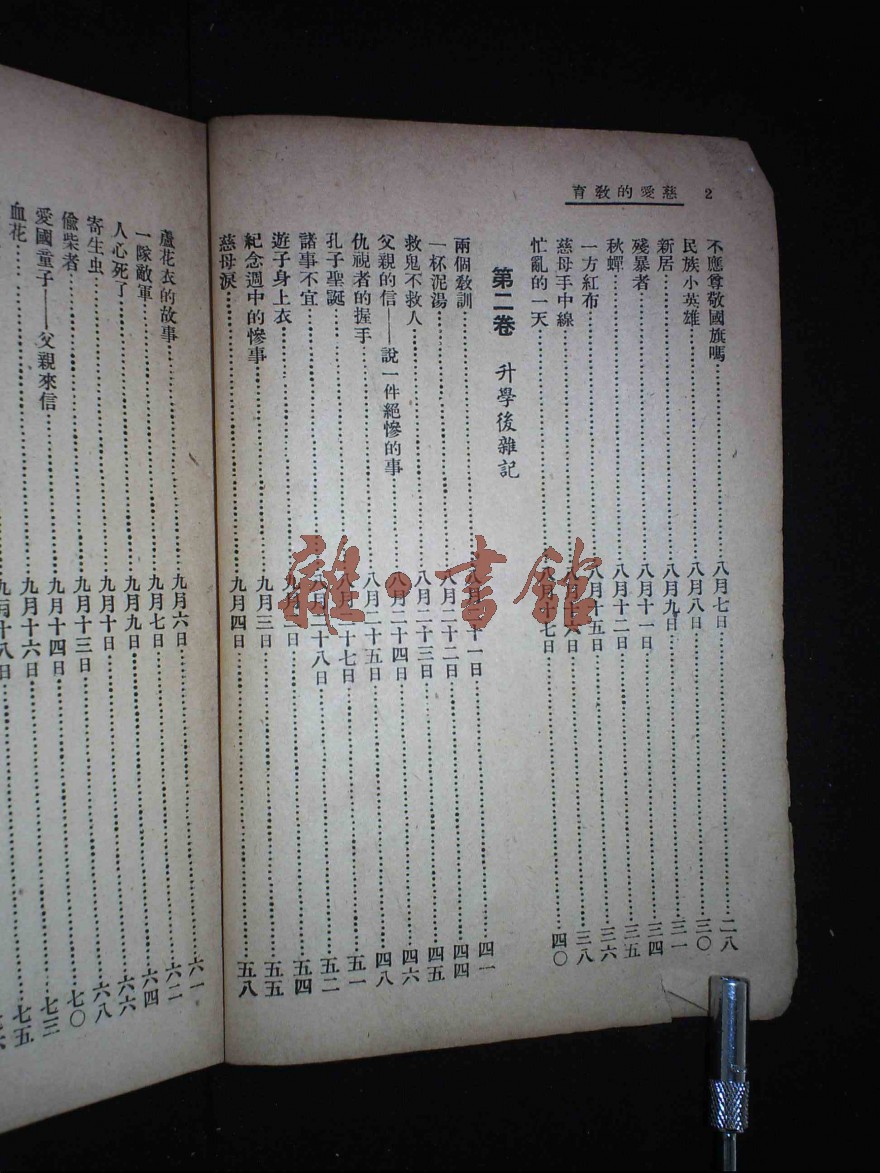 2 慈愛的敎育
不應尊敬國旗嗎……八月七日……二八
民族小英雄……八月八日……三〇
新居……八月九日……三一
殘暴者……八月十一日……三四
秋蟬……八月十二日……三五
一方紅布……八月十五日……三六
慈母手中線……八月十六日……三八
忙亂的一天……八月十七日……四〇
第二卷 升學後雜記
兩個敎訓……八月二十一日……四一
一杯泥湯……八月二十二日……四四
救鬼不救人……八月二十三日……四五
父親的信——說一件絕慘的事……八月二十四日……四六
仇視者的握手……八月二十五日……四八
孔子聖誕……八月二十七日……五一
諸事不宜……八月二十八日……五二
遊子身上衣……九月日……五四
紀念週中的慘事……九月三日……五五
慈母淚……九月四日……五八
蘆花衣的故事……九月六日……六一
一隊敵軍……九月七日……六二
人心死了……九月九日……六四
寄生虫……九月十日……六六
偷柴者……九月十三日……六八
愛國童子——父親來信……九月十四日……七〇
血花……九月十六日……七三
……九月十八日……七五
雜·書館